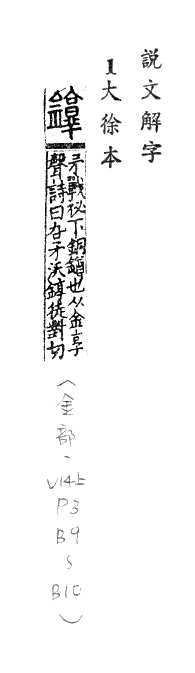 說文解字
1大徐本
錞
矛戟柲下銅鐏也从金享
聲詩曰厹矛沃錞徒對切
（金部、V14上P3B9sB10）